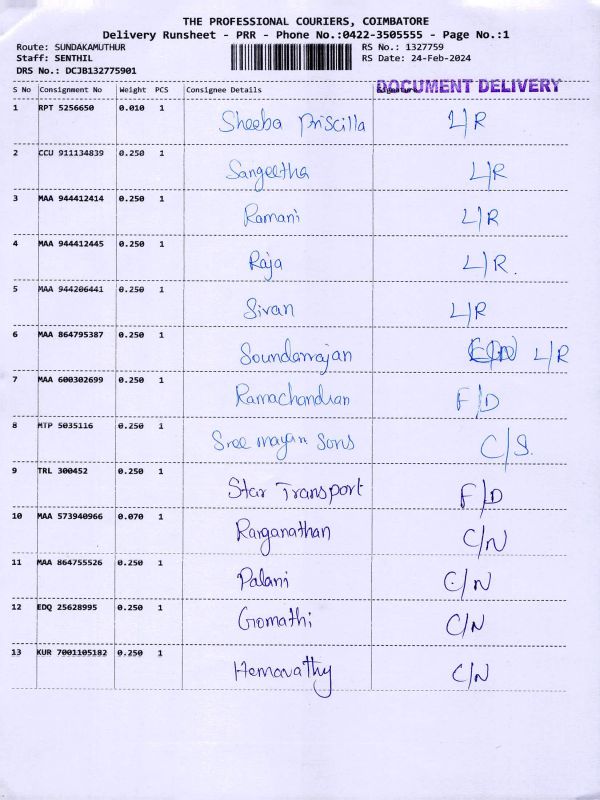 THE PROFESSIONAL COURIERS, COIMBATORE
Delivery Runsheet - PRR - Phone No.:0422-3505555 - Page No.:1
Route: SUNDAKAMUTHUR RS No.: 1327759
Staff: SENTHIL RS Date: 24-Feb-2024
DRS No.: DCJB132775901
DOCUMENT DELIVERY
S No Consignment No Weight PCS Consignee Details Signature
1 RPT 5256650 0.010 1 Sheeba Priscilla L/R
2 CCU 911134839 0.250 1 Sangeetha L/R
3 MAA 944412414 0.250 1 Ramani L/R
4 MAA 944412445 0.250 1 Raja L/R.
5 MAA 944206441 0.250 1 Sivan L/R
6 MAA 864795387 0.250 1 Soundarrajan L/R
7 MAA 600302699 0.250 1 Ramachandran F/D
8 MTP 5035116 0.250 1 Sree mayan Sons C/S.
9 TRL 300452 0.250 1 Star Transport F/D
10 MAA 573940966 0.070 1 Ranganathan C/N
11 MAA 864755526 0.250 1 Palani C/N
12 EDQ 25628995 0.250 1 Gomathi C/N
13 KUR 7001105182 0.250 1 Hemavathy C/N